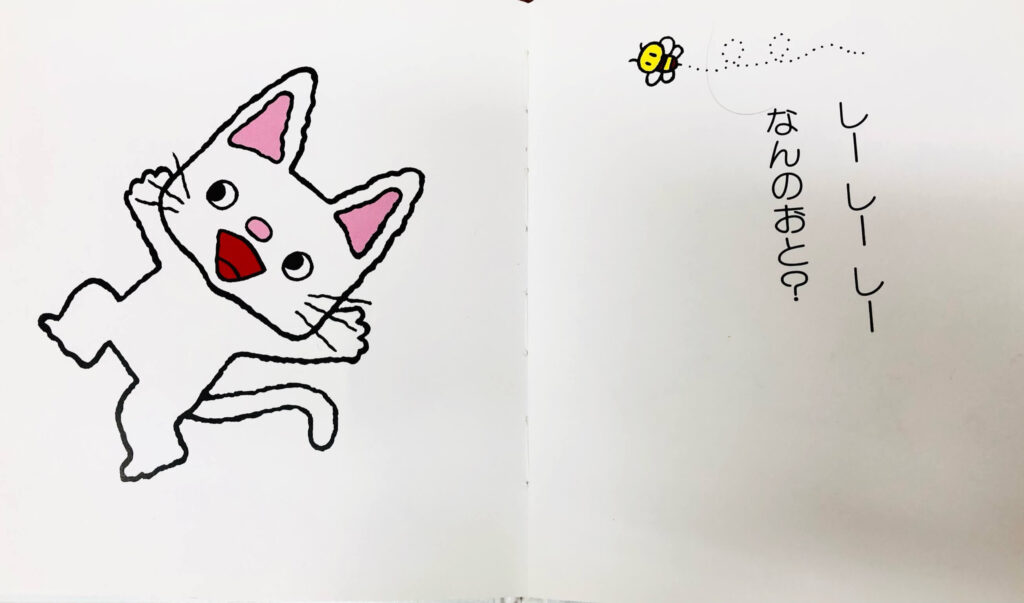 しー しー しー
なんのおと?